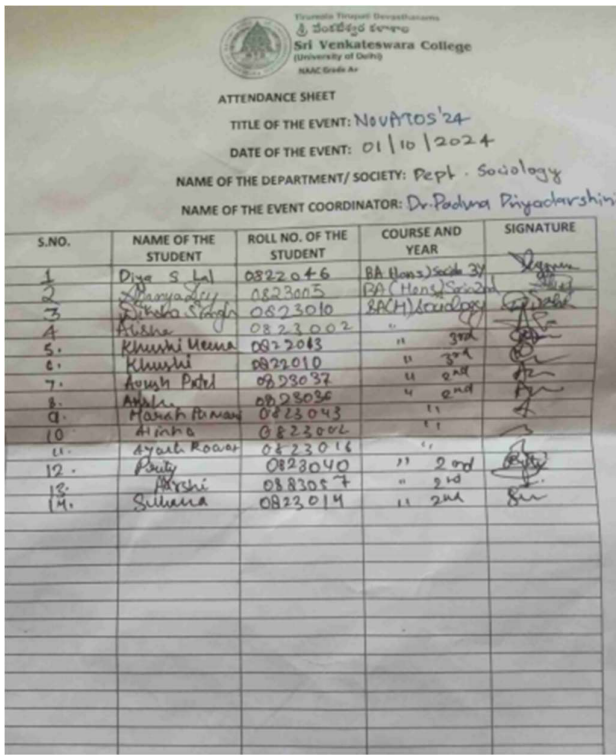 Tirumala Tirupati Devasthanams
శ్రీ వేంకటేశ్వర కళాశాల
Sri Venkateswara College
(University of Delhi)
NAAC Grade A+
ATTENDANCE SHEET
TITLE OF THE EVENT: NOVATOS'24
DATE OF THE EVENT: 01/10/2024
NAME OF THE DEPARTMENT/ SOCIETY: Dept. Sociology
NAME OF THE EVENT COORDINATOR: Dr. Padma Priyadarshini
S.NO. NAME OF THE STUDENT ROLL NO. OF THE STUDENT COURSE AND YEAR SIGNATURE
1 Diya S Lal 0822046 BA (Hons) 3Y
2 0823005 BA (Hons) 2nd
3 Diksha Singh 0823010 BA(H) Sociology
4 Alisha 0823002 "
5. Khushi Meena 0822013 " 3rd
6. Khushi 0822010 " 3rd
7. Ayush Patel 0823037 " 2nd
8. 0823036 " 2nd
9. 0823043 "
10 0823002 "
11. 0823016 "
12. 0823040 " 2nd
13. Arshi 0883057 " 2nd
14. Suhana 0823014 " 2nd